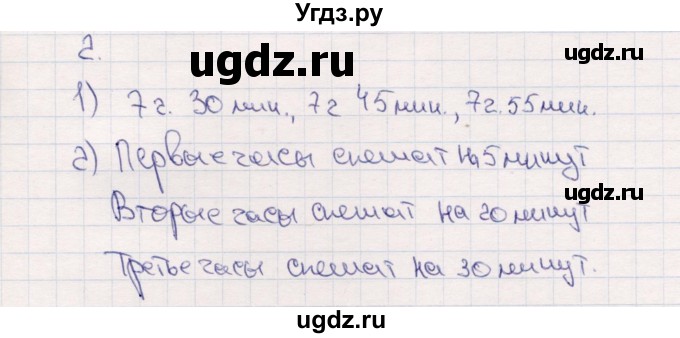 Угдз.ру
2.
ugdz.ru ugdz.ru ugdz.ru
1) 7г. 30 мин., 7г 45 мин., 7г. 55 мин.
2) Первые часы спешат на 5 минут
Вторые часы спешат на 20 минут
Третье часы спешат на 30 минут.
ugdz.ru ugdz.ru
ugdz.ru